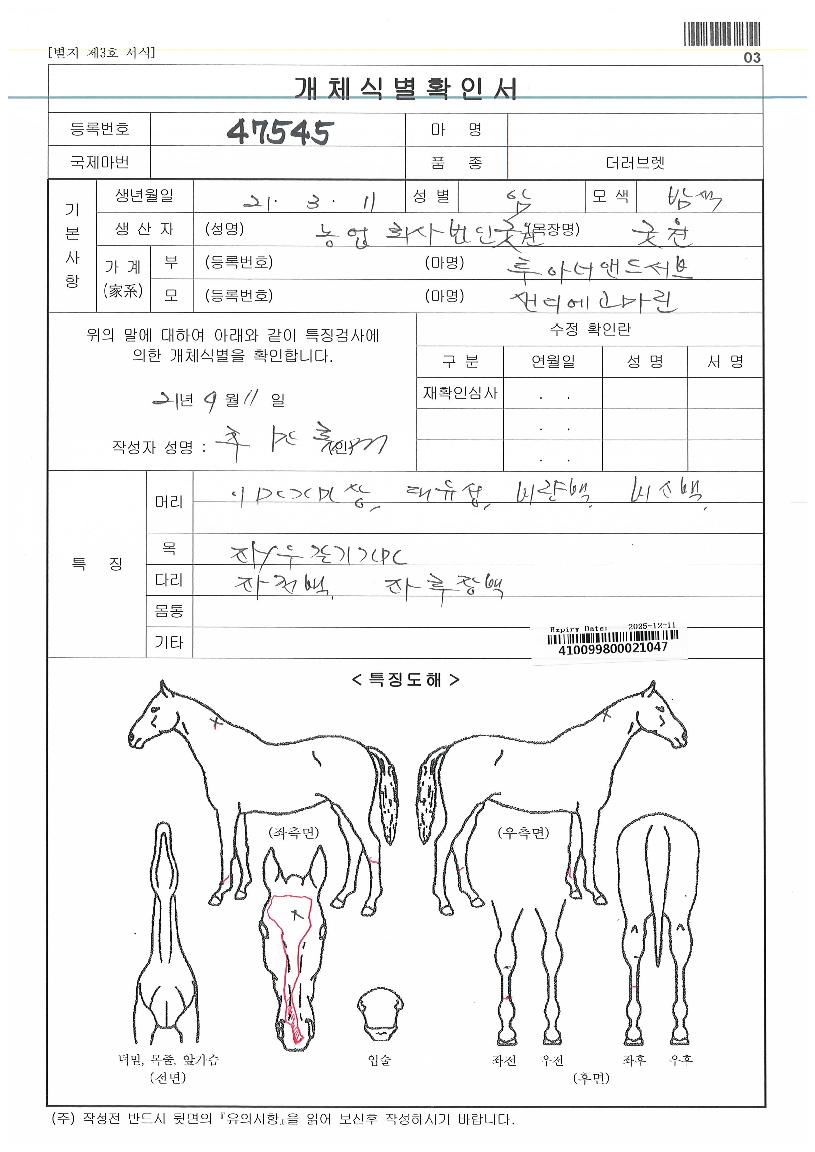 [별지 제3호 서식]
03
개체식별확인서
등록번호 47545 마 명
국제마번 품 종 더러브렛
기본사항
생년월일 21. 3. 11 성별 암 모색 밤색
생산자 (성명) 농업회사법인굿윈 (목장명) 굿윈
가계 (家系) 부 (등록번호) (마명) 투아너앤드서브
모 (등록번호) (마명)
위의 말에 대하여 아래와 같이 특징검사에
의한 개체식별을 확인합니다.
21년 9월 11일
작성자 성명 : (인)
수정 확인란
구 분 연월일 성 명 서 명
재확인심사 . .
. .
. .
특 징
머리 대유성, 비량백, 비신백,
목
다리 좌전백,
몸통
기타
Expiry Date: 2025-12-11
410099800021047
< 특징도해 >
(좌측면) (우측면)
턱밑, 목줄, 앞가슴
(전면)
입술
좌전 우전 좌후 우후
(후면)
(주) 작성전 반드시 뒷면의 『유의사항』을 읽어 보신후 작성하시기 바랍니다.